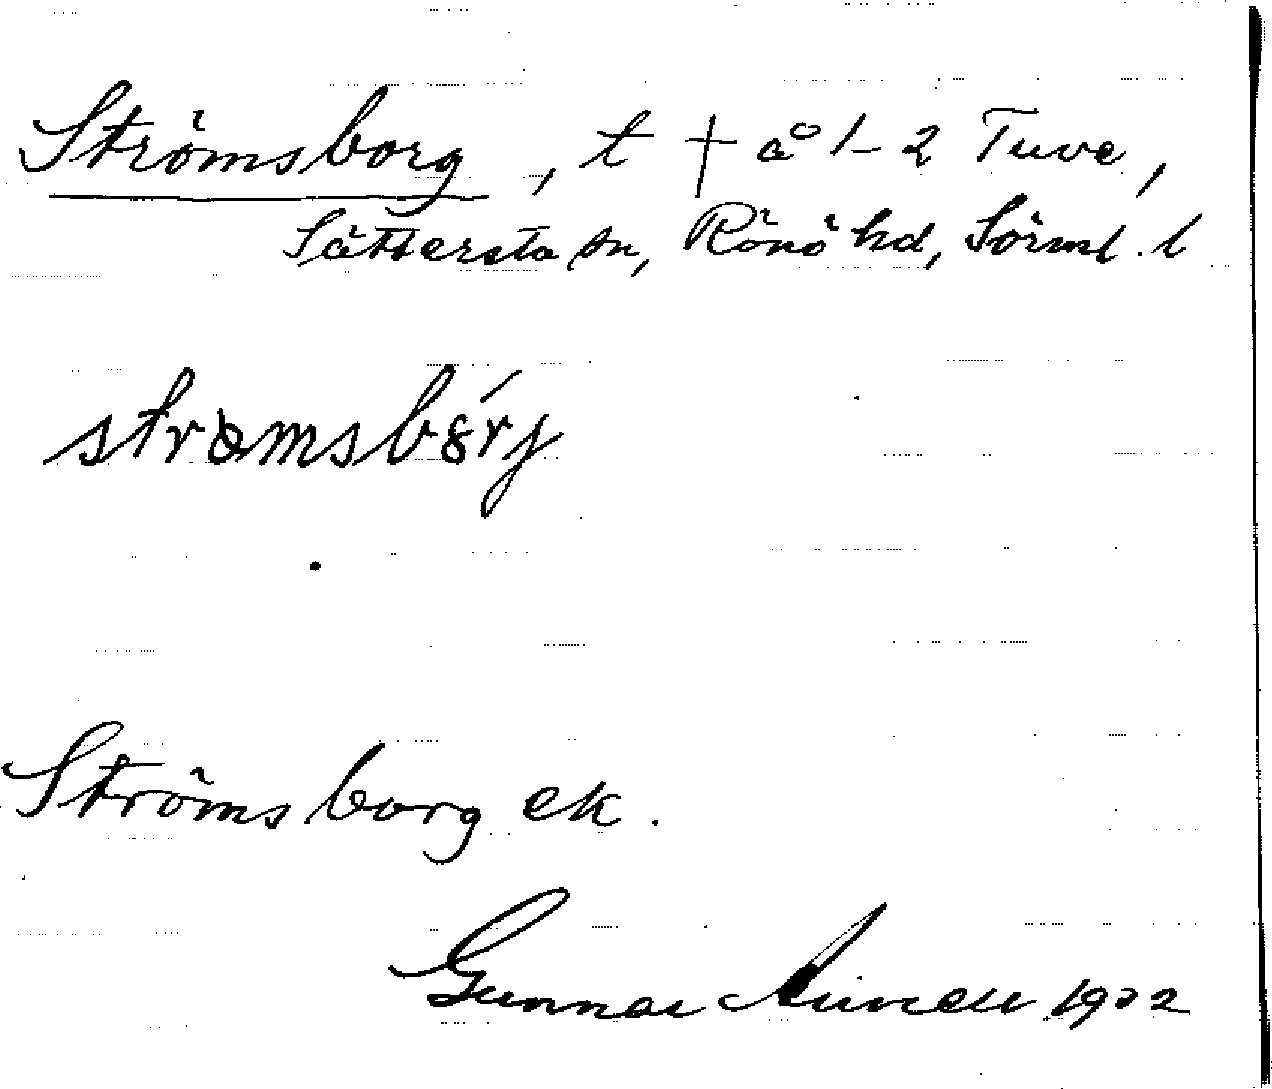 Strömsborg, t † å 1-2 Tuve,
Sättersta sn, Rönö hd, Sörml. l
Strömsborg ek.
Gunnar 1922